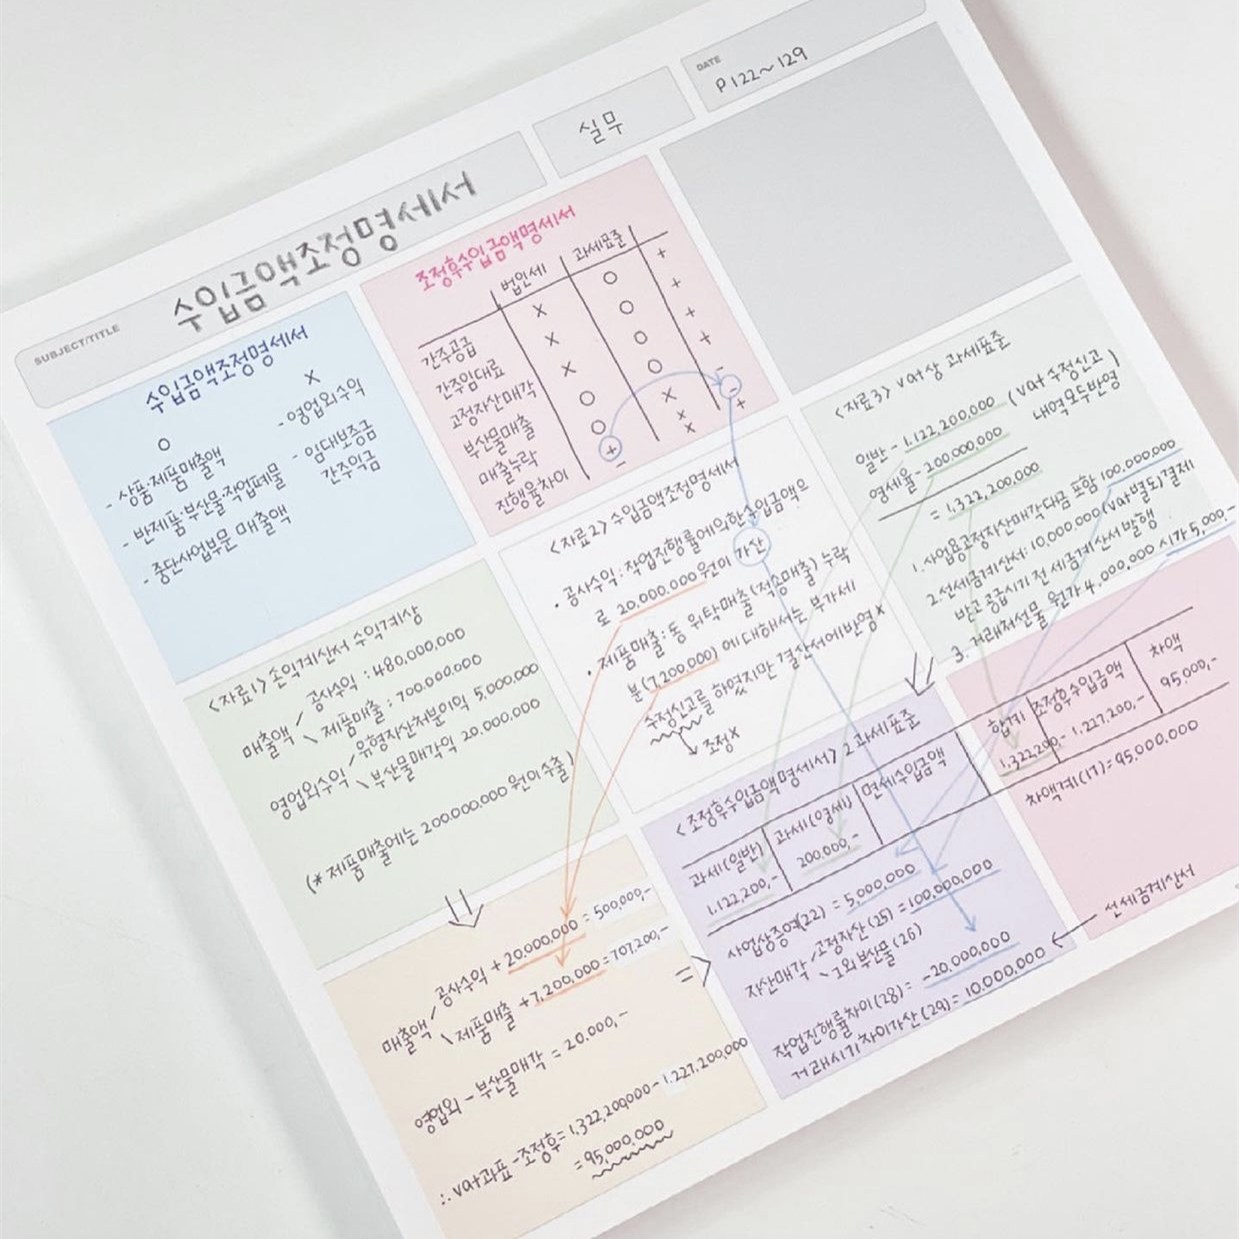 SUBJECT/TITLE
수입금액조정명세서
실무
DATE
P122~129
수입금액조정명세서
O
- 상품·제품매출액
- 반제품·부산물·작업폐물
- 중단사업부문 매출액
X
- 영업외수익
- 임대보증금
간주익금
조정후수입금액명세서
법인세 과세표준
간주공급 X O +
간주임대료 X O +
고정자산매각 X O +
부산물매출 O O +
매출누락 O X -
진행율차이 + X -
- X +
<자료1> 손익계산서 수익계상
매출액 / 공사수익 : 480,000,000
\ 제품매출 : 700,000,000
영업외수익 / 유형자산처분이익 5,000,000
\ 부산물매각익 20,000,000
(* 제품매출에는 200,000,000 원이 수출)
<자료2> 수입금액조정명세서
· 공사수익 : 작업진행률에의한수입금액으
로 20,000,000원이 가산
· 제품매출 : 동 위탁매출(적송매출) 누락
분(7,200,000) 에 대해서는 부가세
수정신고를 하였지만 결산서에반영X
조정X
<자료3> vat상 과세표준
일반 - 1,122,200,000 (vat 수정신고
내역모두반영)
영세율 - 200,000,000
= 1,322,200,000
1. 사업용고정자산매각대금 포함 100,000,000
2. 선세금계산서 : 10,000,000(vat별도)결제
받고 공급시기 전 세금계산서 발행
3. 거래처선물 원가 4,000,000 시가 5,000,-
매출액 / 공사수익 + 20,000,000 = 500,000,-
\ 제품매출 + 7,200,000 = 707,200,-
영업외 - 부산물매각 = 20,000,-
∴ vat과표 - 조정후 = 1,322,200,000 - 1,227,200,000
= 95,000,000
<조정후수입금액명세서> 2. 과세표준
과세(일반) 과세(영세) 면세수입금액
1,122,200,- 200,000,-
사업상증여(22) = 5,000,000
자산매각 / 고정자산(25) = 100,000,000
\ 그외부산물(26)
작업진행률차이(28) = -20,000,000
거래시기차이가산(29) = 10,000,000
선세금계산서
합계 조정후수입금액 차액
1,322,200,- 1,227,200,- 95,000,-
차액계(17) = 95,000,000